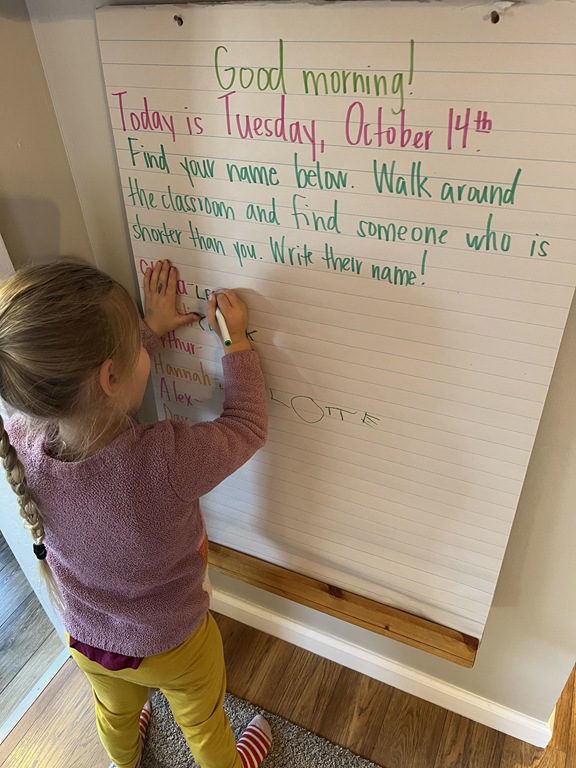 Good morning!
Today is Tuesday, October 14th.
Find your name below. Walk around
the classroom and find someone who is
shorter than you. Write their name!
Hannah
LOTTE
Alex-